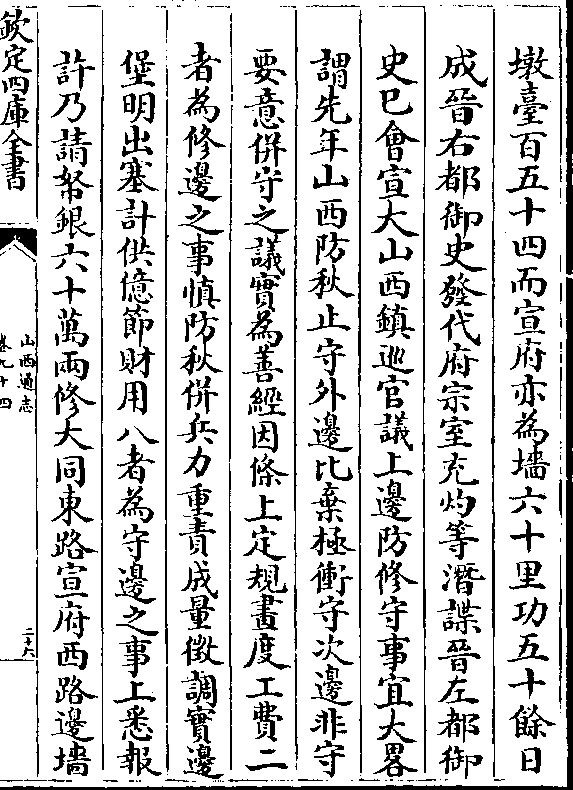 墩臺百五十四而宣府亦為墻六十里功五十餘日
成晉右都御史發代府宗室充灼等潛諜晉左都御
史已會宣大山西鎮巡官議上邊防修守事宜大畧
謂先年山西防秋止守外邊比棄極衝守次邊非守
要意併守之議實為善經因條上定規畫度工費二
者為修邊之事慎防秋併兵力重責成量徴調實邊
堡明出塞計供億節財用八者為守邊之事上悉報
許乃請帑銀六十萬兩修大同東路宣府西路邊墻
欽定四庫全書
山西通志
卷九十四
二十六